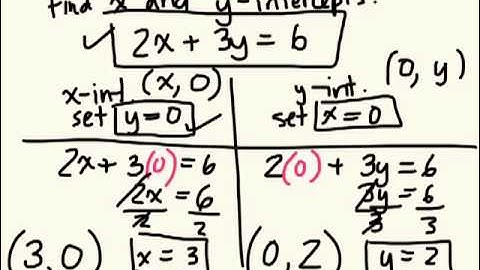 find x and y-intercepts.
✓ 2x + 3y = 6
x-int. (x, 0)
set y = 0 ✓
y-int. (0, y)
set x = 0
2x + 3(0) = 6
2x = 6
2 2
(3, 0) x = 3
2(0) + 3y = 6
3y = 6
3 3
(0, 2) y = 2